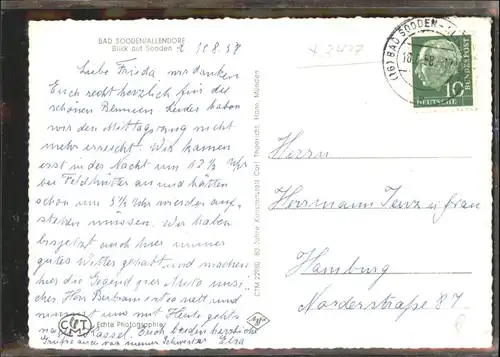 BAD SOODEN/ALLENDORF
Blick auf Sooden
10.8.58
Liebe Frieda, wir danken
Euch recht herzlich für die
schönen Leider haben
wir den Mittagszug nicht
mehr erreicht. Wir kamen
erst in der Nacht um 12½ Uhr
bei an und hätten
schon um 5¼ Uhr wieder auf-
stehen müssen. Wir haben
bis jetzt auch hier immer
gutes Wetter gehabt und machen
hier die Gegend per Auto unsi-
cher. Herr ist so nett und
nimmt uns mit. Heute geht's
nach Kassel. Euch beiden herzliche
Grüße auch von meiner Schwester Elsa
CMT
Echte Photographie
CTM 22980 80 Jahre Kunstanstalt Carl Thoericht, Hann. Münden
x 3427
(16) BAD SOODEN-
DEUTSCHE
BUNDESPOST
10
Herrn
Herrmann u frau
Hamburg
Norderstraße 87